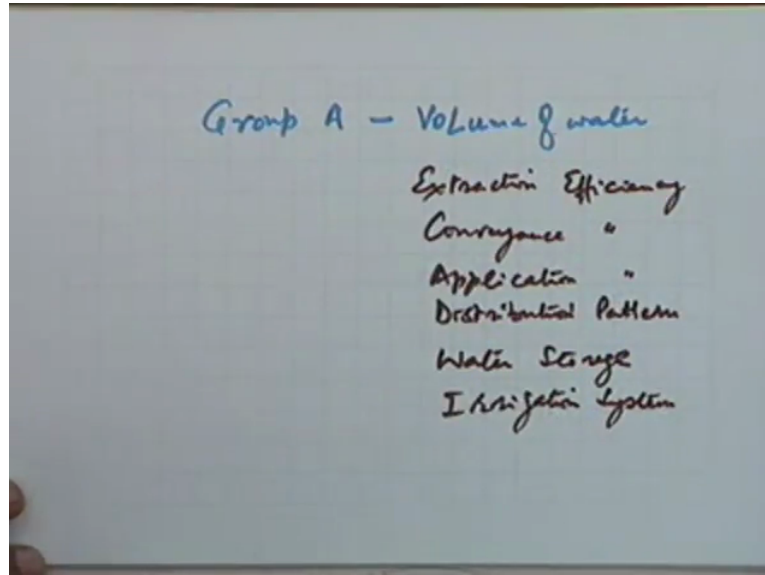 Group A - Volume of water
Extraction Efficiency
Conveyance "
Application "
Distribution Pattern
Water Storage
Irrigation System